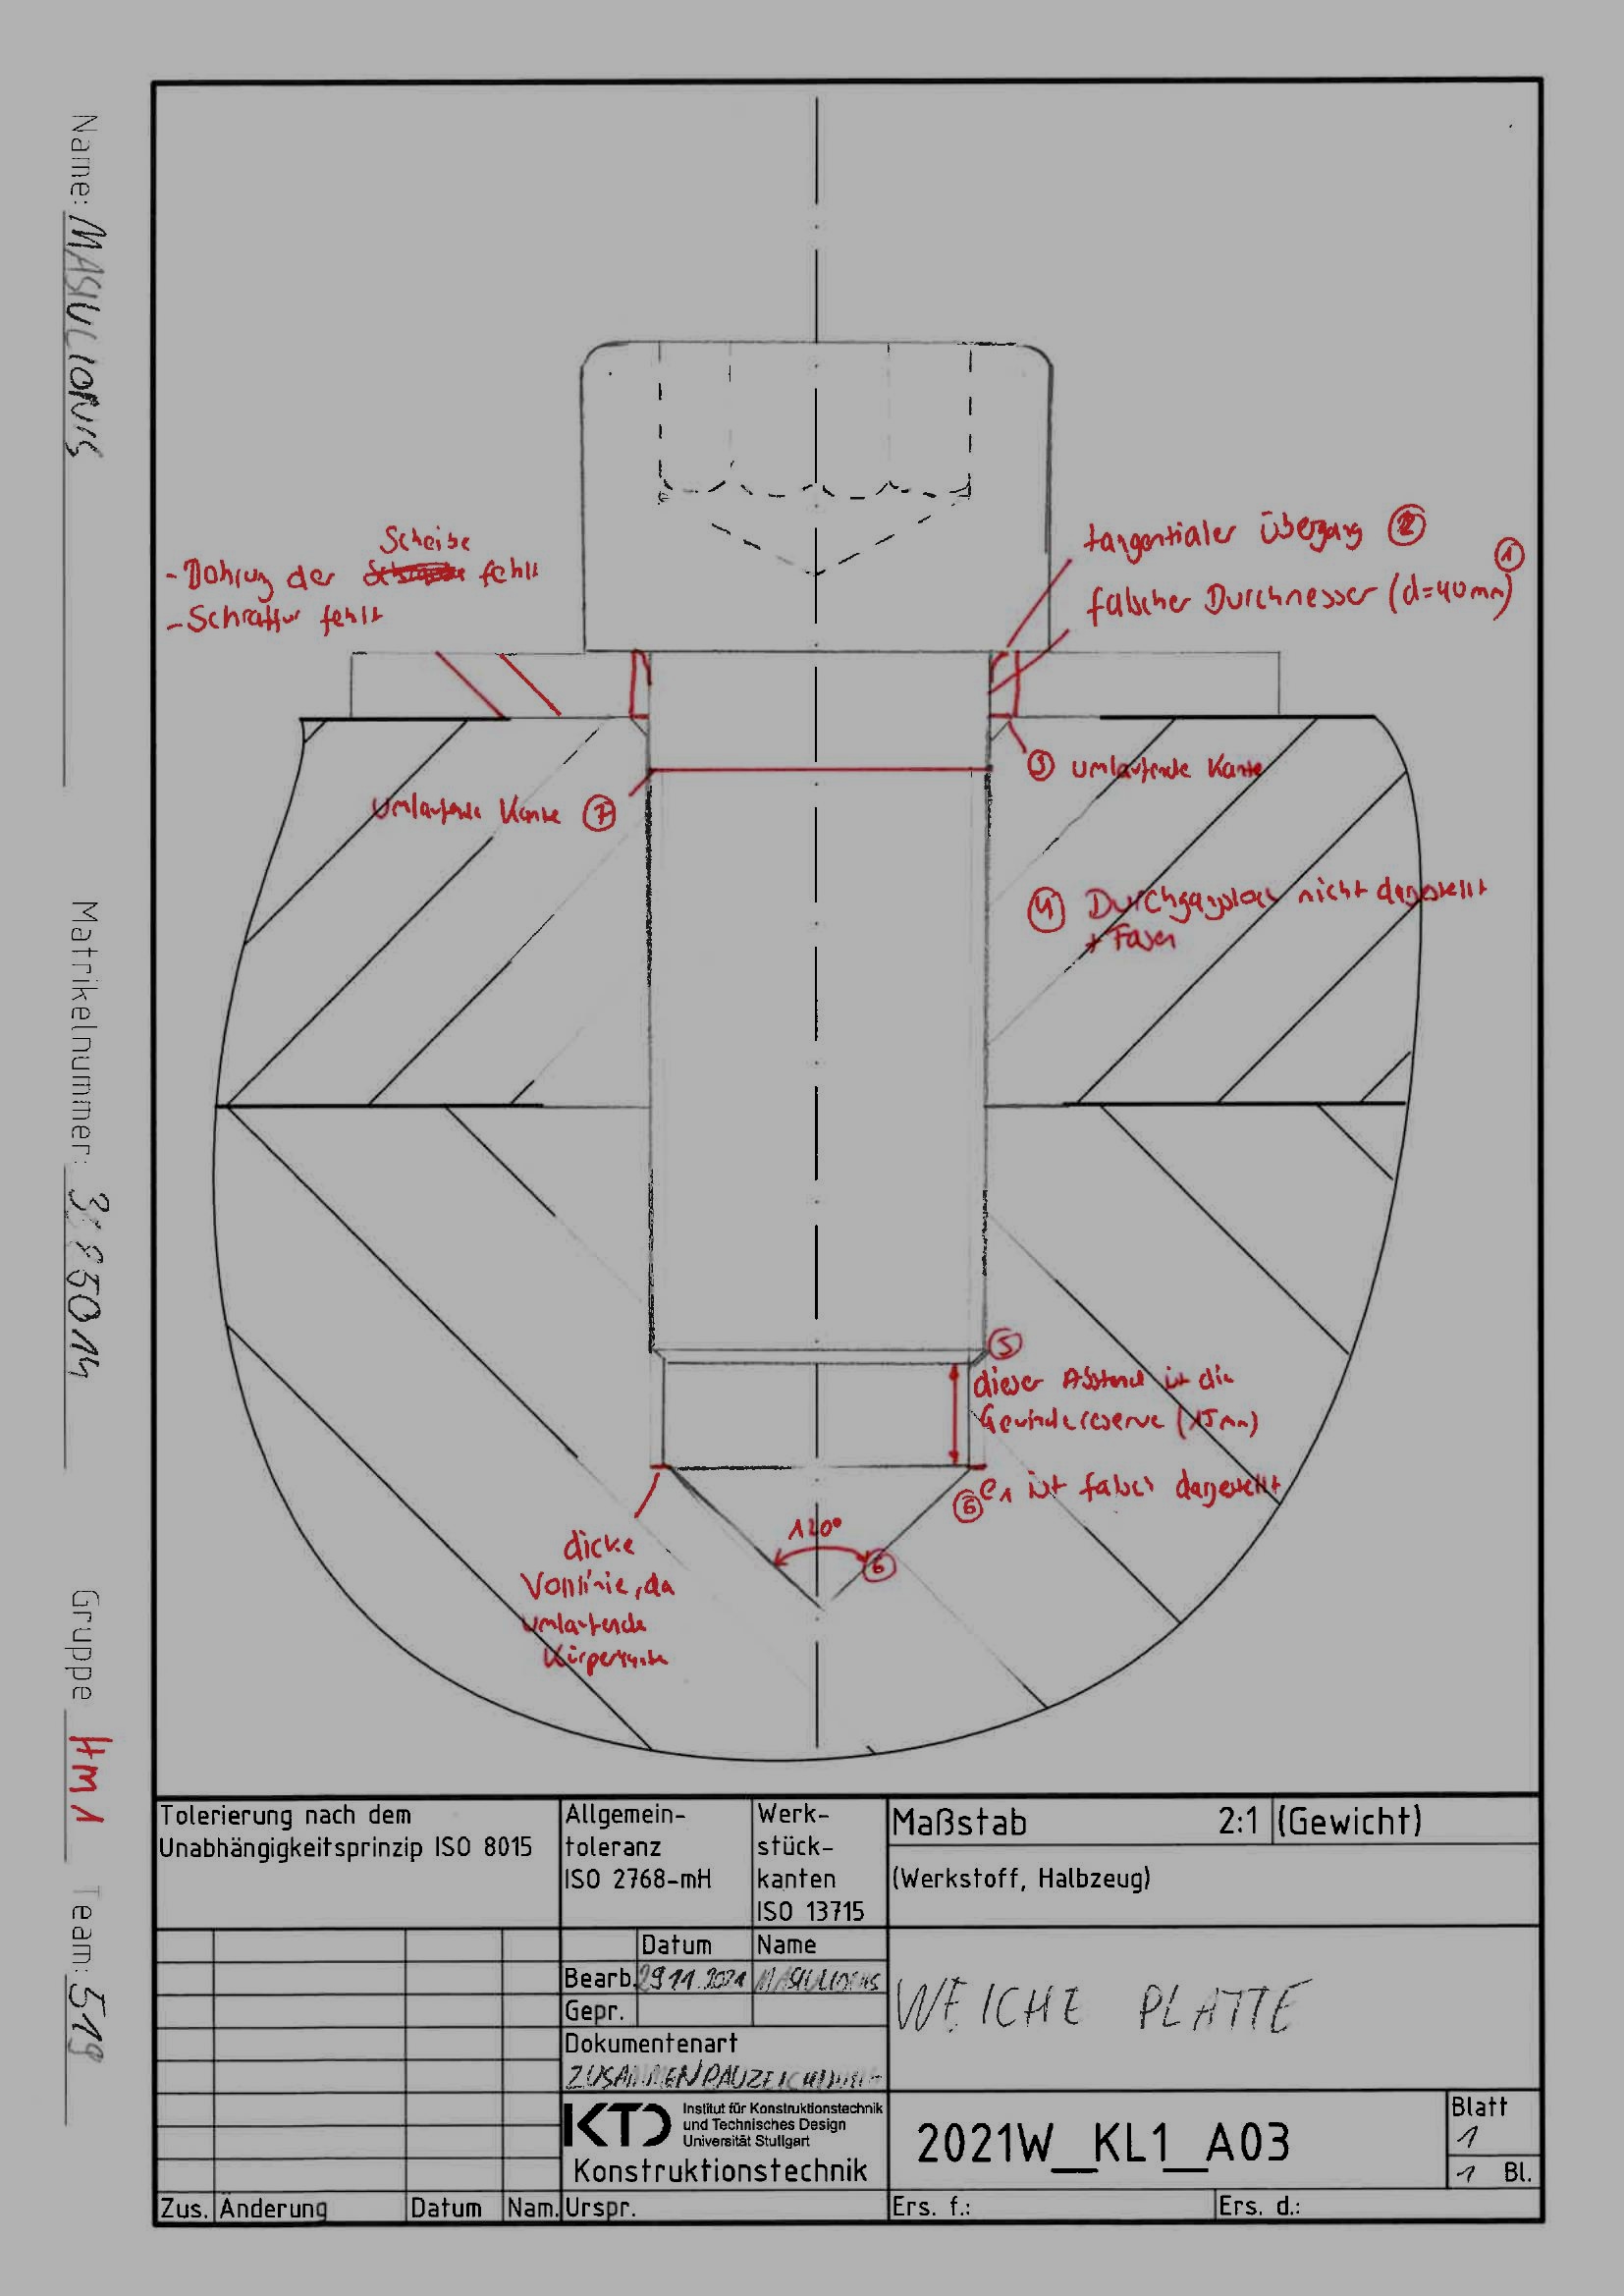 Name: MASIULIONIS
Matrikelnummer:
Gruppe HM1 Team: 519
Scheibe
der fehlt
- Schraffur fehlt
tangentialer Übergang ②
①
falscher Durchmesser (d=40mm)
③ umlaufende Kante
umlaufende Kante ⑦
④ Durchgangsloch nicht dargestellt
+ Fasen
⑤
dieser Abstand ist die
Gewindereserve (15mm)
⑥ e1 ist falsch dargestellt
120°
⑥
dicke
Volllinie, da
umlaufende
Körperkante
Tolerierung nach dem
Unabhängigkeitsprinzip ISO 8015
Allgemein-
toleranz
ISO 2768-mH
Werk-
stück-
kanten
ISO 13715
Maßstab 2:1 (Gewicht)
(Werkstoff, Halbzeug)
Datum Name
Bearb. 29.11.2021 MASIULIONIS
Gepr.
Dokumentenart
ZUSAMMENBAUZEICHNUNG
WEICHE PLATTE
KTD Institut für Konstruktionstechnik
und Technisches Design
Universität Stuttgart
Konstruktionstechnik
2021W_KL1_A03
Blatt
1
1 Bl.
Zus. Änderung Datum Nam. Urspr.
Ers. f.: Ers. d.: